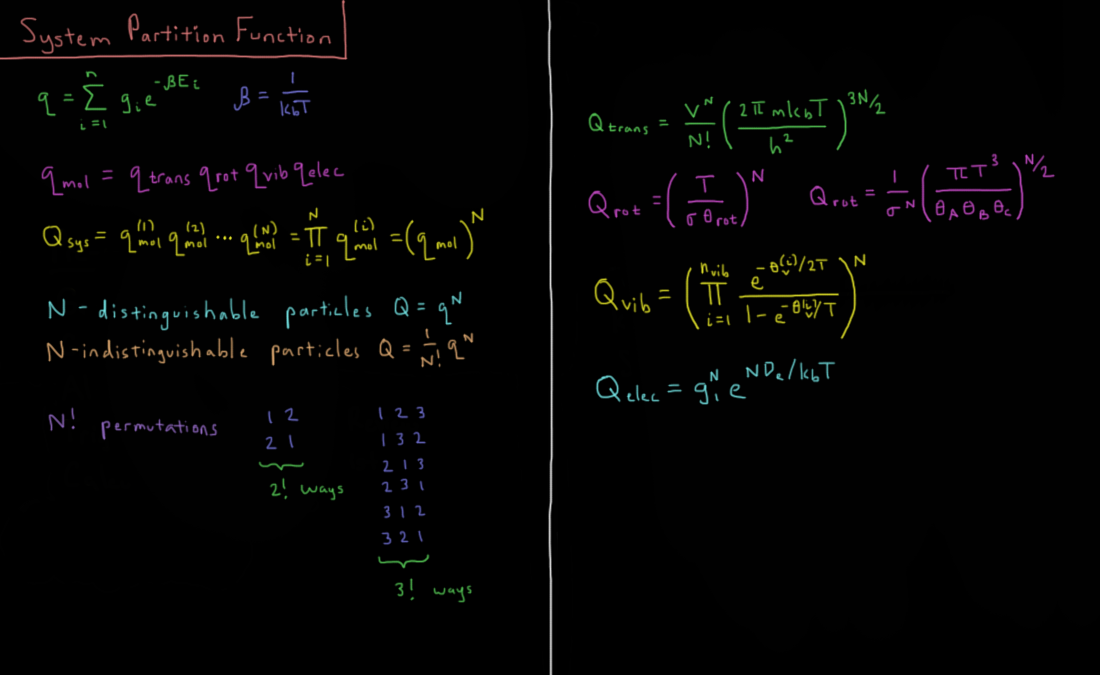 System Partition Function
q = Σ_{i=1}^{n} g_i e^{-βE_i}   β = 1/(k_bT)
q_mol = q_trans q_rot q_vib q_elec
Q_sys = q_mol^{(1)} q_mol^{(2)} ... q_mol^{(N)} = Π_{i=1}^{N} q_mol^{(i)} = (q_mol)^N
N - distinguishable particles Q = q^N
N-indistinguishable particles Q = 1/N! q^N
N! permutations
1 2
2 1
2! ways
1 2 3
1 3 2
2 1 3
2 3 1
3 1 2
3 2 1
3! ways
Q_trans = V^N/N! (2πmk_bT/h^2)^{3N/2}
Q_rot = (T/(σθ_rot))^N   Q_rot = 1/σ^N (πT^3/(θ_A θ_B θ_C))^{N/2}
Q_vib = (Π_{i=1}^{n_vib} e^{-θ_v^{(i)}/2T}/(1-e^{-θ_v^{(i)}/T}))^N
Q_elec = g_1^N e^{ND_e/k_bT}